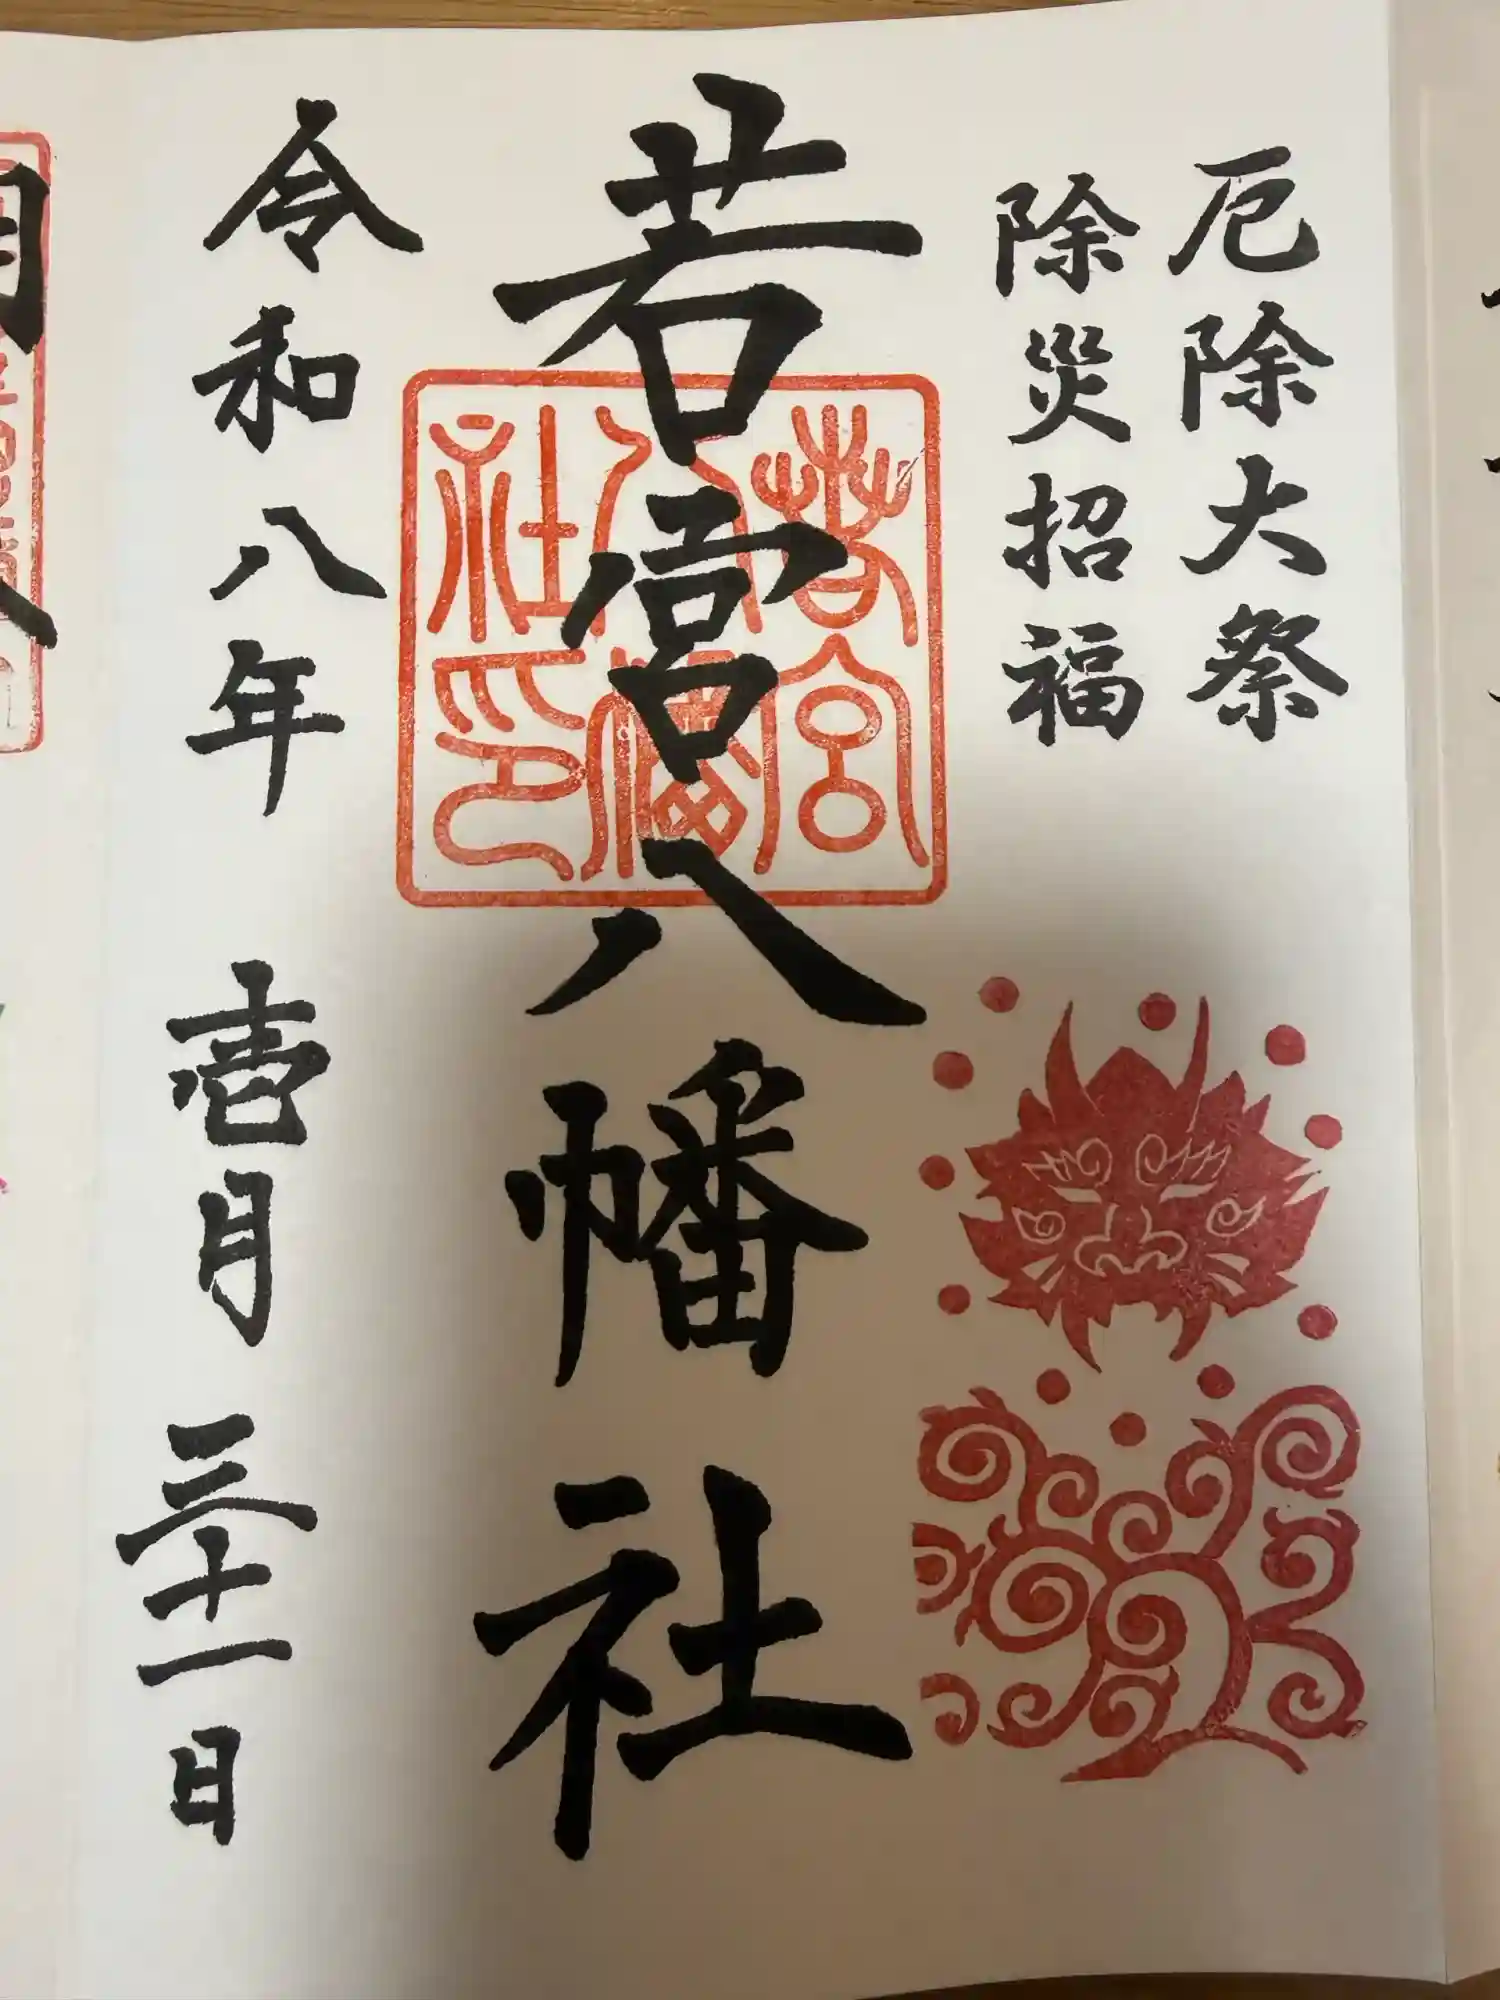 厄除大祭
除災招福
若宮八幡社
若宮
八幡
社印
令和八年 壱月 三十一日